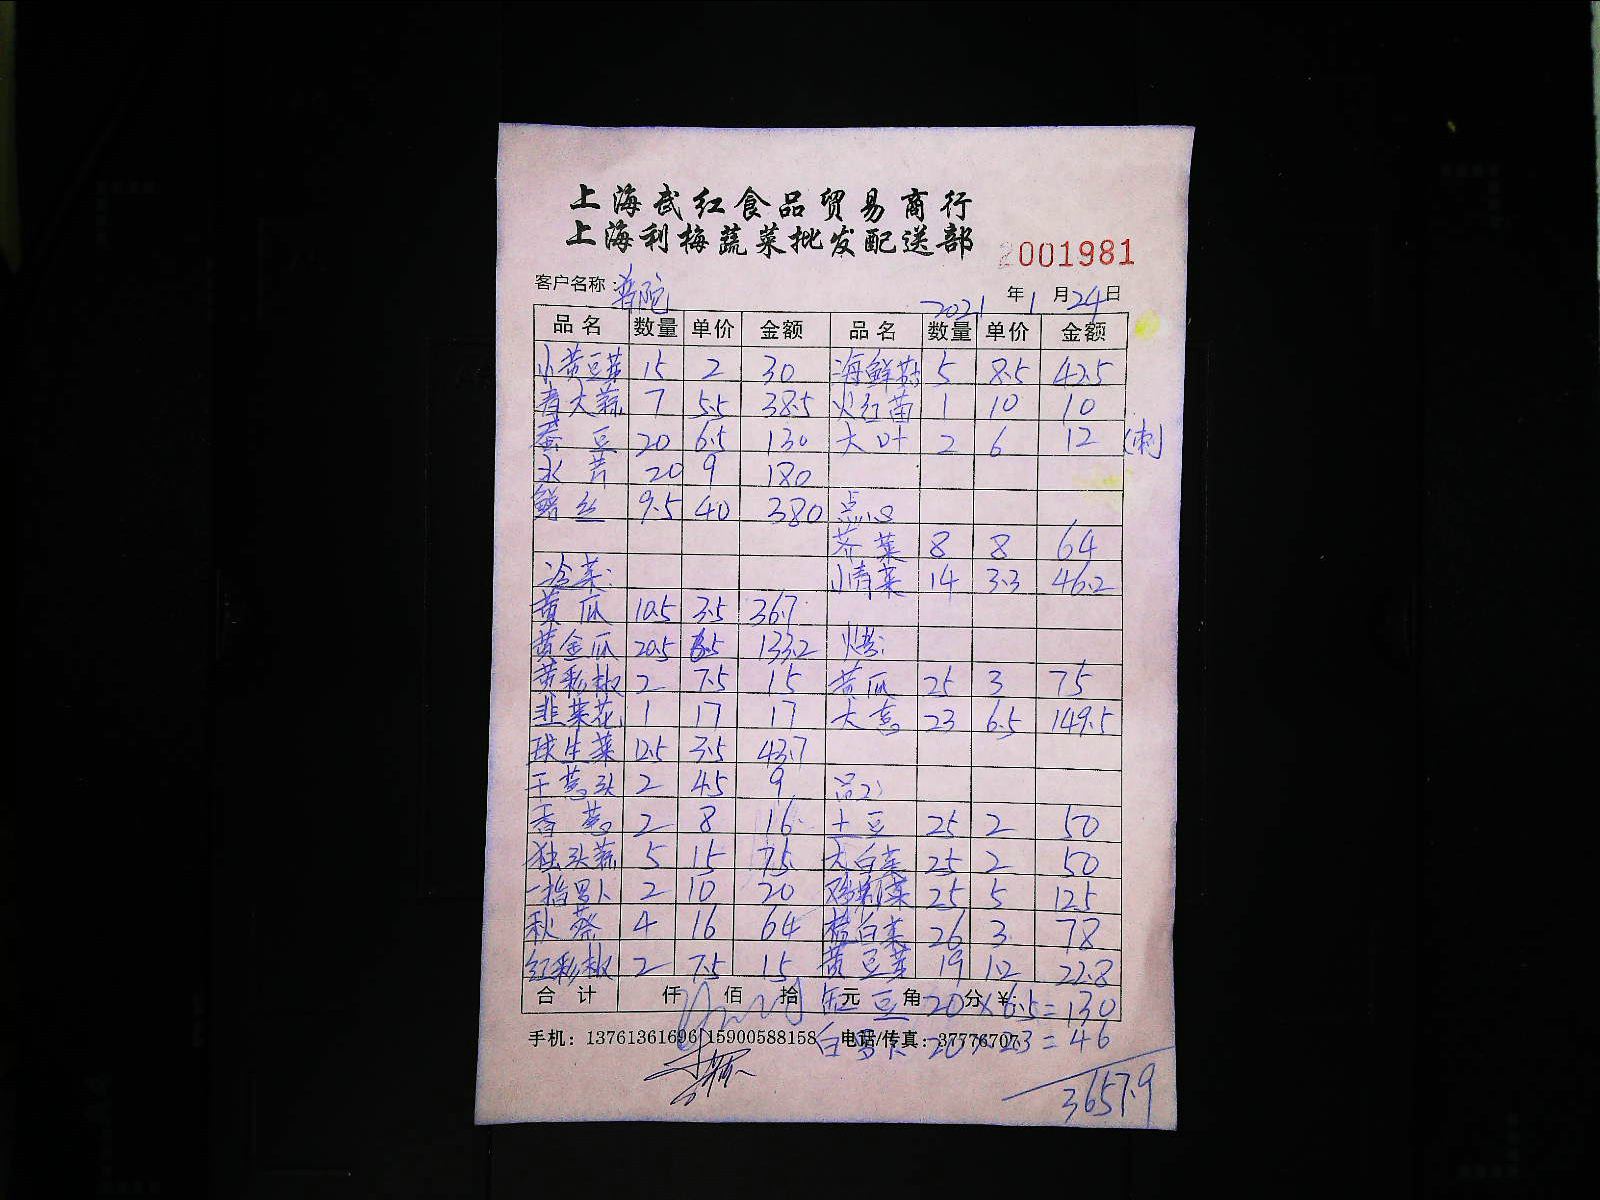 上海武红食品贸易商行
上海利梅蔬菜批发配送部
2001981
客户名称：普陀
2021年1月24日
品名 数量 单价 金额 品名 数量 单价 金额
小黄豆芽 15 2 30 海鲜菇 5 8.5 42.5
青大蒜 7 5.5 38.5 火红苗 1 10 10
蚕豆 20 6.5 130 大叶 2 6 12 (刺)
水芹 20 9 180
鳝丝 9.5 40 380 点心
荠菜 8 8 64
冷菜: 小青菜 14 3.3 46.2
黄瓜 10.5 3.5 36.7
黄金瓜 20.5 6.5 133.2 烤:
黄彩椒 2 7.5 15 黄瓜 25 3 75
韭菜花 1 17 17 大葱 23 6.5 149.5
球生菜 12.5 3.5 43.7
干葱头 2 4.5 9
香葱 2 8 16 土豆 25 2 50
独头蒜 5 15 75 大白菜 25 2 50
一指罗卜 2 10 20 25 5 125
秋葵 4 16 64 白菜 26 3 78
红彩椒 2 7.5 15 黄豆芽 19 1.2 22.8
合计 仟 佰 拾 元 角 分 ¥:
豆 20×6.5=130
手机：13761361696 15900588158 电话/传真：37776707
白罗卜 20×2.3=46
3657.9